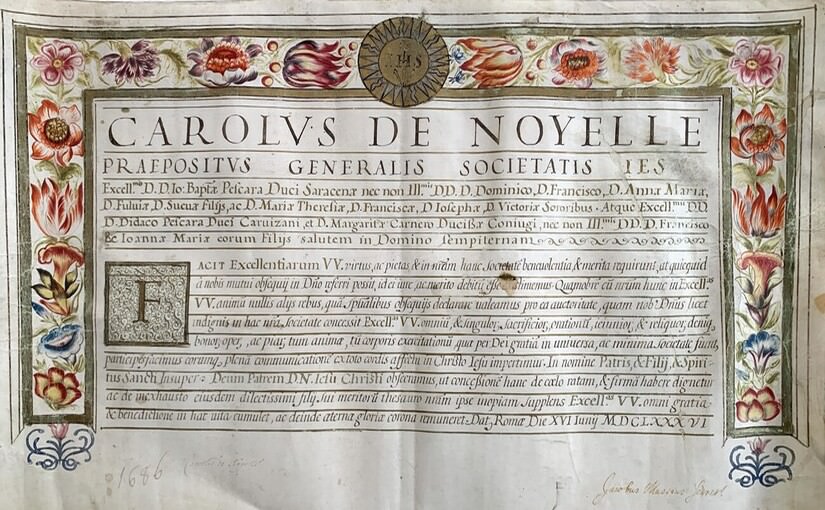 IHS
CAROLVS DE NOYELLE
PRAEPOSITVS GENERALIS SOCIETATIS IES
Excell.mo D. D. Io: Baptæ Pescara Duci Saracenæ nec non Ill.mis DD. D. Dominico, D. Francisco, D. Annæ Mariæ,
D. Fuluiæ D. Sueuæ Filijs, ac D. Mariæ Theresiæ, D. Franciscæ, D Iosephæ, D. Victoriæ Sororibus. Atque Excell.mis DD
D. Didaco Pescara Duci Caruizani, et D. Margaritæ Carnero Ducissæ Coniugi, nec non Ill.mis DD. D. Francisco
& Ioannæ Mariæ eorum Filijs salutem in Domino sempiternam
FACIT Excellentiarum VV. virtus, ac pietas & in nram hanc Societatē beneuolentia, & merita requirunt, ut quicquid
a nobis mutui obsequij in Dño referri possit, id ei iure, ac merito debitū esse existimemus Quamobrē cū nrūm hunc in Excell.as
VV. animū nullis alijs rebus, quā Spūalibus obsequijs declarare ualeamus pro ea auctoritate, quam nob. Dñus licet
indignis in hac nrā Societate concessit Excell.as VV. omniū, & singulor, Sacrificior, orationū, ieiunior, & reliquor, deniq,
bonor, oper, ac piar, tum animæ, tū corporis exercitationū quæ per Dei gratiā in uniuersa, ac minima Societate fiunt,
participes facimus earumq, plenā communicationē ex toto cordis affectu in Christo Iesu impertimur. In nomine Patris, & Filij, & Spiri-
tus Sancti Insuper Deum Patrem D. N. Iesu Christi obsecramus, ut concessionē hanc de cælo ratam, & firmā habere dignetur
ac de inexhausto eiusdem dilectissimi filij sui meritorū thesauro nram ipse inopiam supplens Excell.as VV. omni gratia
& benedictione in hac uita cumulet, ac deinde æternæ gloriæ corona remuneret. Dat, Romæ Die XVI Iunij MDCLXXXVI
1686
Jacobus